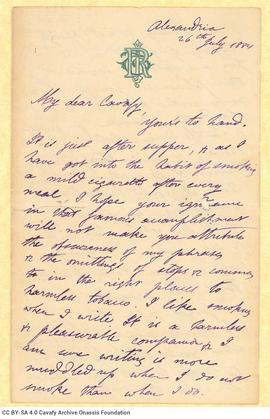 Alexandria
26th July 1884
My dear Cavafy
Yours to hand.
It is just after supper, & as I
have got into the habit of smoking
a mild cigarette after every
meal I hope your ignorance
in that famous accomplishment
will not make you attribute
the obscureness of my phrases
or the omittings of stops or commas
to in the right places to
harmless tobacco. I like smoking
when I write It is a harmless
& pleasurable companion & I
am sure writing is more
muddled up when I do not
smoke than when I do.
CC BY-SA 4.0 Cavafy Archive Onassis Foundation